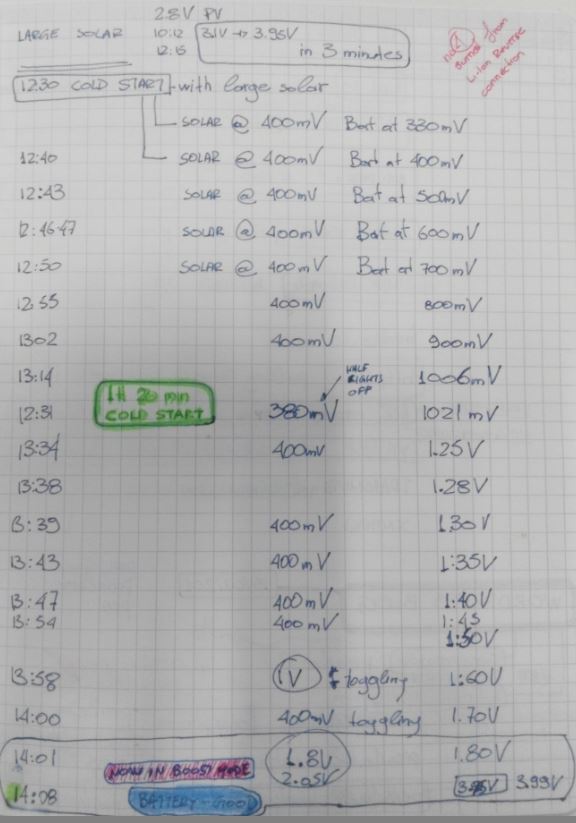 2.8V PV
LARGE SOLAR 10:12 3.1V → 3.95V
12:15 in 3 minutes
NOT
BUTTER from
Li-Ion
connection
12:30 COLD START - with large solar
SOLAR @ 400mV Bat at 330mV
12:40 SOLAR @ 400mV Bat at 400mV
12:43 SOLAR @ 400mV Bat at 500mV
12:46-47 SOLAR @ 400mV Bat at 600mV
12:50 SOLAR @ 400mV Bat at 700mV
12:55 400mV 800mV
13:02 400mV 900mV
HALF
LIGHTS
OFF
13:14 1006mV
1H 26 min
COLD START
12:31 380mV 1021 mV
13:34 400mV 1.25V
13:38 1.28V
13:39 400mV 1.30V
13:43 400mV 1:35V
13:47 400mV 1:40V
13:54 400mV 1:45
1:50V
13:58 1V toggling 1:60V
14:00 400mV toggling 1.70V
14:01 1.8V 1.80V
NOW IN BOOST MODE 2.05V
14:08 BATTERY-GOOD 3.95V 3.99V